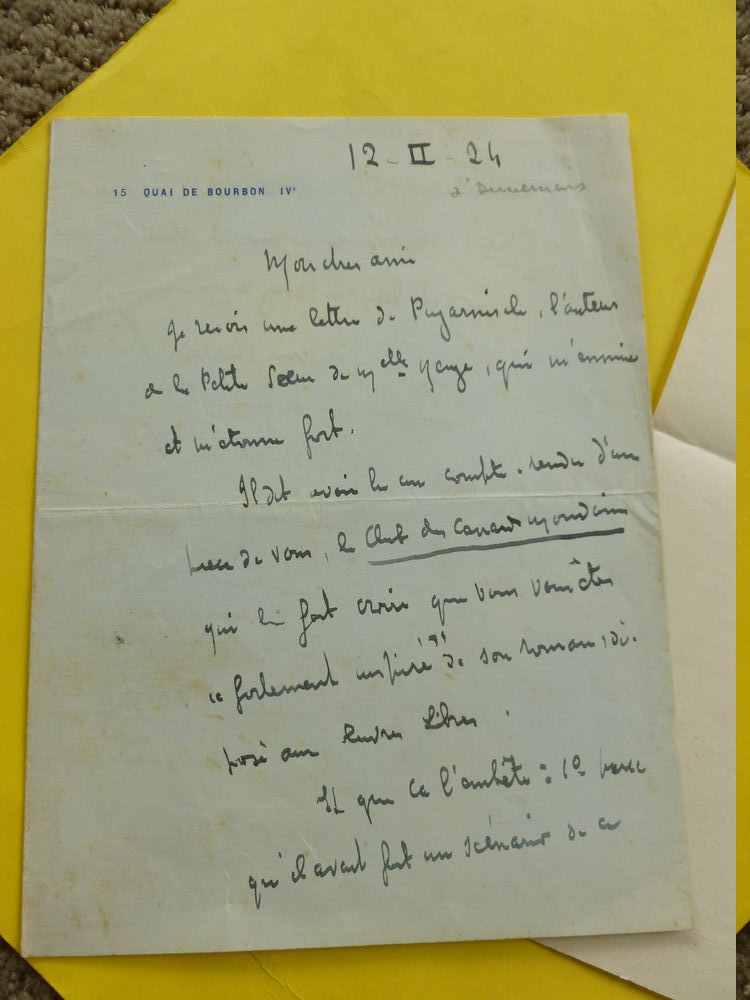 12 - II - 24
15 QUAI DE BOURBON. IVᵉ
d'Duvernois
Mon cher ami
Je reçois une lettre de Puyarnisle, l'auteur
de la Petite Soeur de Mlle, qui m'ennuie
et m'étonne fort.
Il dit avoir lu un compte-rendu d'une
pièce de vous, le Club des Canards mondains
qui lui fait croire que vous vous êtes
"fortement inspiré" de son roman, dé-
posé aux Livres.
Et que ça l'embête : 1º parce
qu'il avait fait un scénario de ce